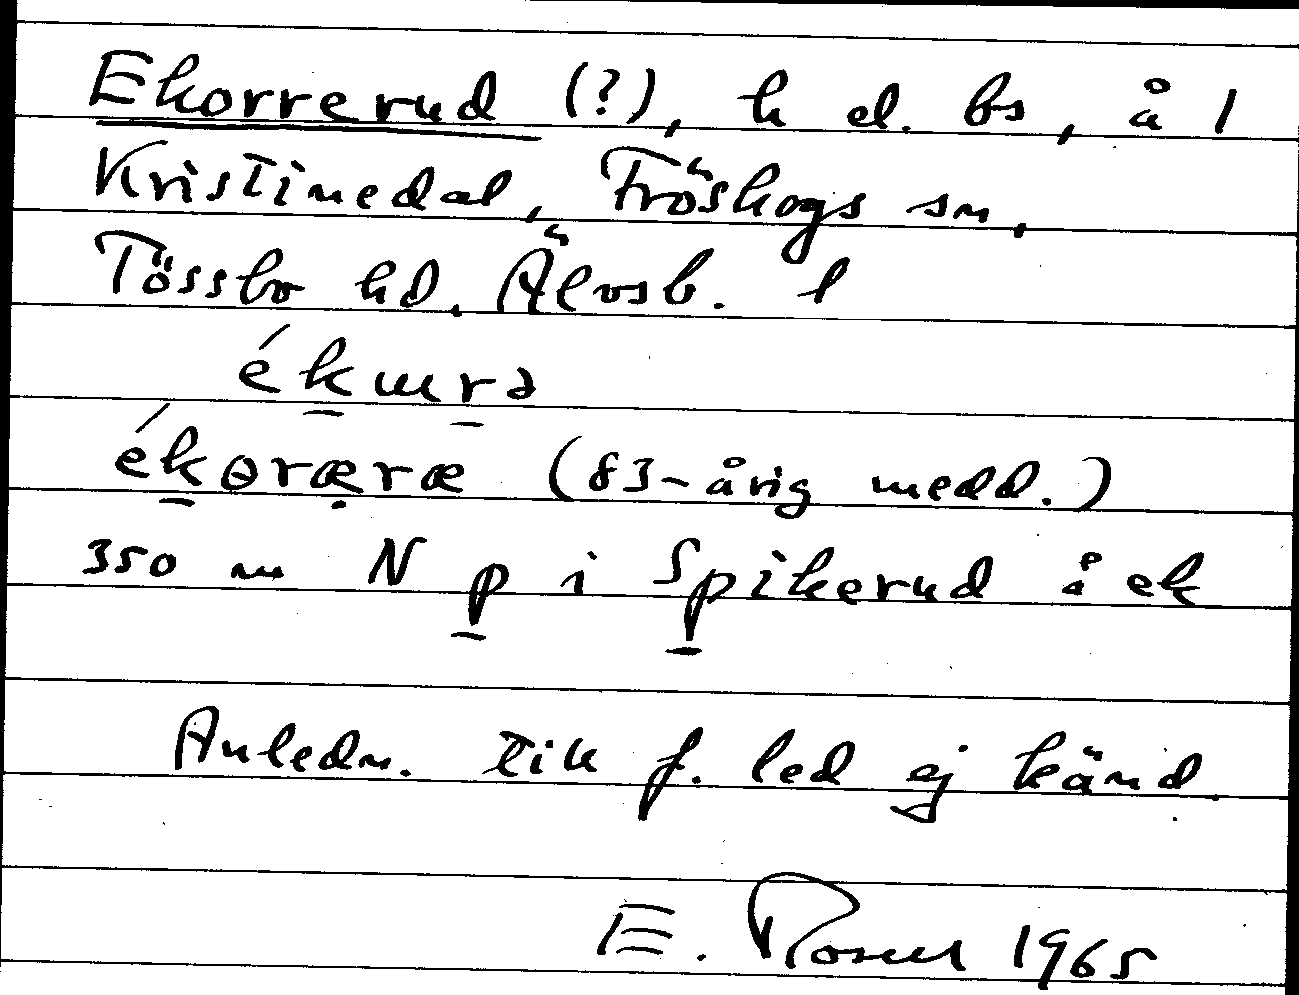 Ekorrerud (?), h el. bs, å 1
Kristinedal, Fröskogs sn,
Tössbo hd. Älvsb. l
ékɯrə
ékɵræræ (83-årig medd.)
350 m N p i Spikerud å ek
Anledn. till f. led ej känd.
E. Rosell 1965